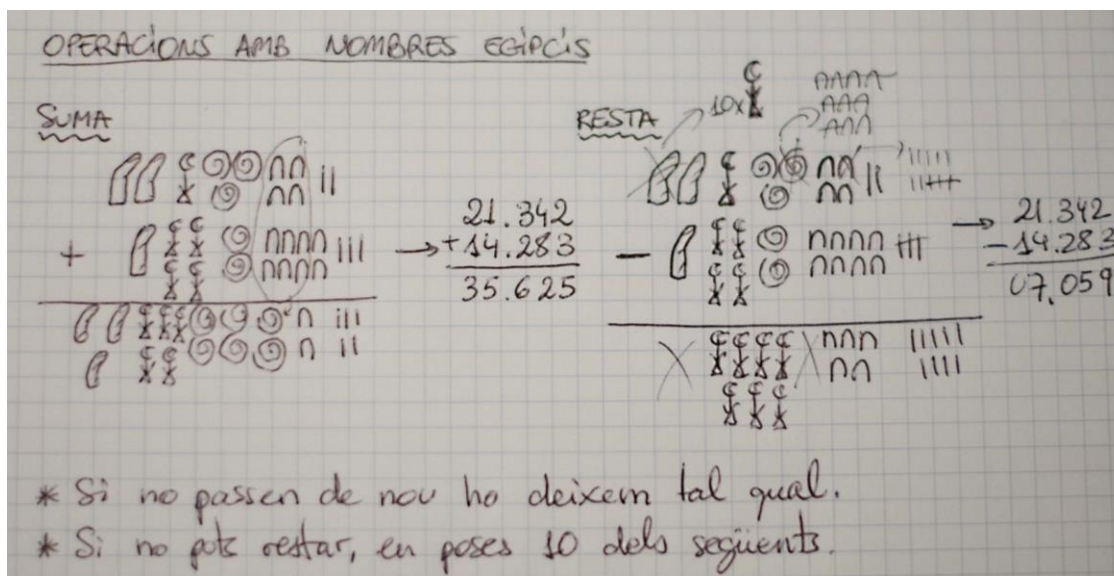 OPERACIONS AMB NOMBRES EGIPCIS
SUMA
+
→
21.342
+14.283
35.625
RESTA
10x
−
→
21.342
−14.283
07.059
* Si no passen de nou ho deixem tal qual.
* Si no pots restar, en poses 10 dels següents.